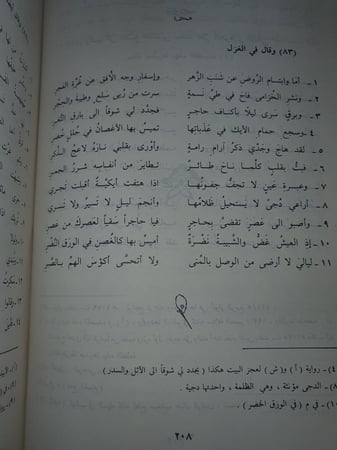 (٨٣) وقال في الغزل
١ ـ أمّا وابتسام الروض عن شنب الزهر وإسفار وجه الأفق عن غُرّة الفجر
٢ ـ ونشر الخُزامى فاح في طيّ نسمةٍ سرت من رُبى سلع وطيبة والحِجر
٣ ـ وبرقٍ سرى ليلاً بأكناف حاجرٍ فجدّد لي شوقاً الى بارق الثغر
٤ ـ وسجع حمام الأيك في عذباتها تميس بها الأغصان في حلل خضر
٥ ـ لقد هاج وجدي ذكر آرام رامةٍ وأورى بقلبي نازلة لاعج الذكر
٦ ـ فبتُّ بقلبٍ كلّما ناح طائرٌ تطاير من أنفاسه شرر الجمر
٧ ـ وعبرة عينٍ لا تجفّ جفونها اذا هتفت أيكيّة أقبلت تجري
٨ ـ أراعي دُجىً لا يستحيل ظلامُها وأنجم ليلٍ لا تسير ولا تسري
٩ ـ وأصبو الى عصرٍ تقضّى بحاجرٍ فيا حاجراً سقياً لعصرك من عصر
١٠ ـ إذ العيش غضٌّ والشبيبة نضرةٌ أميس بها كالغصن في الورق النضر
١١ ـ ليالي لا أرضى من الوصل بالمُنى ولا أتحسّى أكؤس الهمّ بالصبر
(٤) ـ رواية (أ) و(ش) لعجز البيت هكذا (يجدد لي شوقاً الى الأثل والسدر)
(٨) ـ الدجى مؤنثة، وهي الظلمة، واحدتها دجية.
(١٠) ـ في م (في الورق الخضر).
٢٠٨